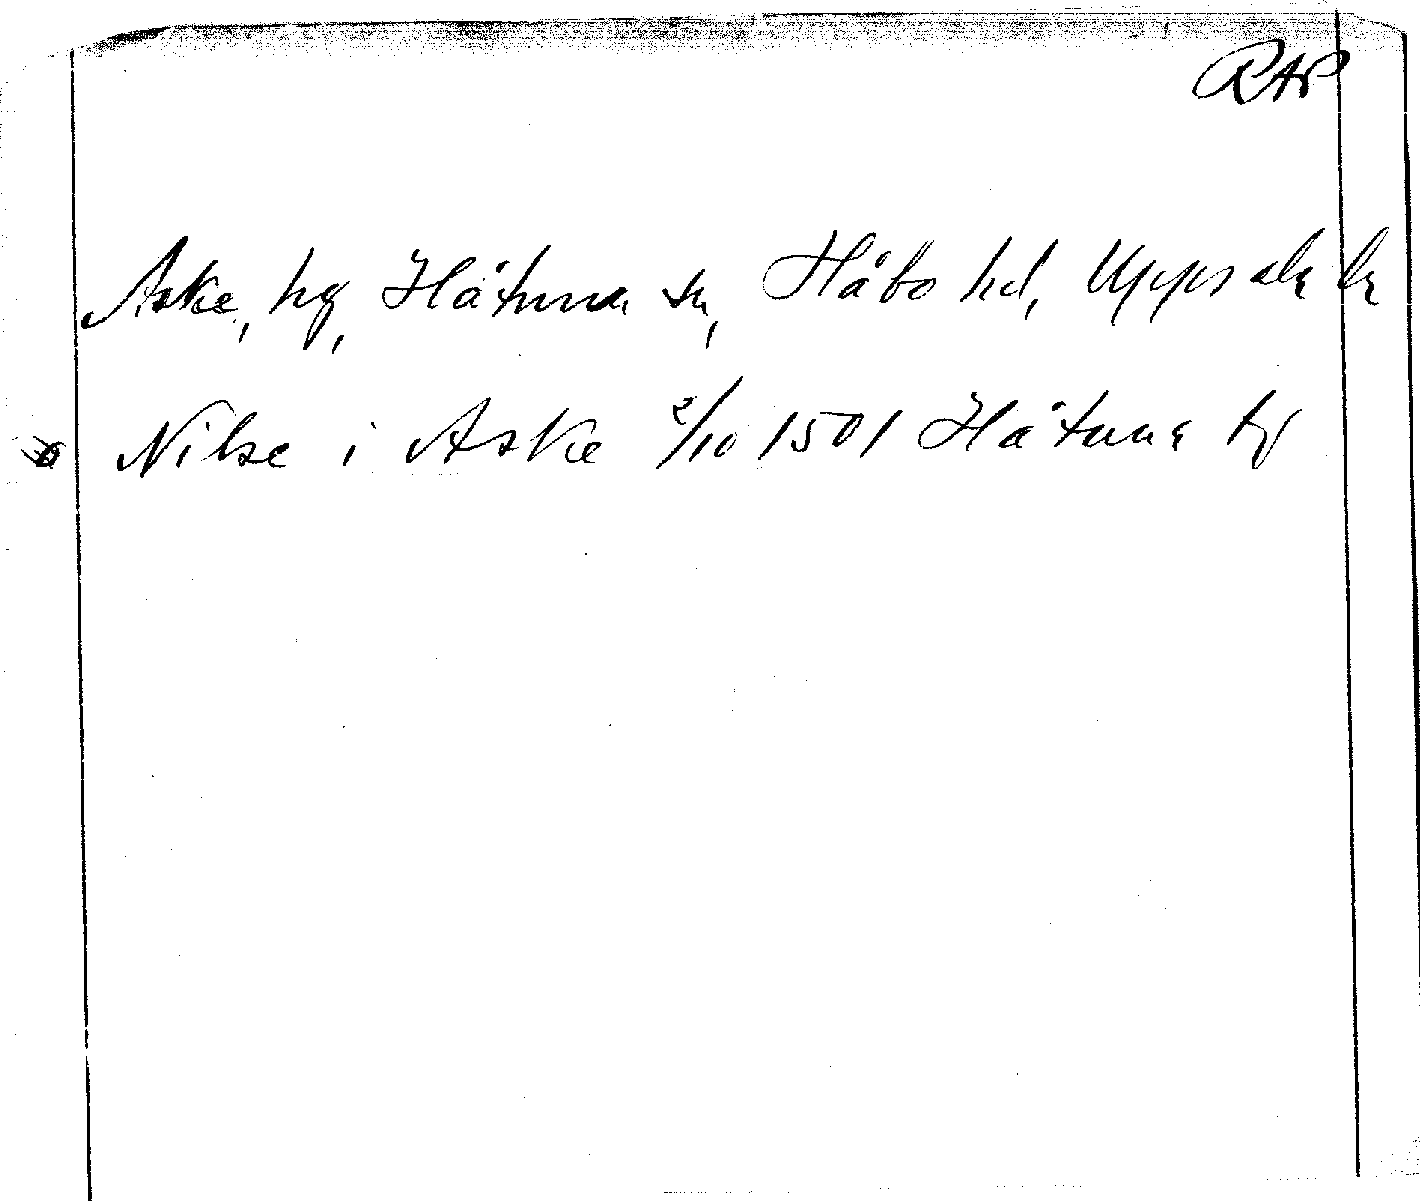 RAP
Aske, hg, Håtuna sn, Håbo hd, Uppsala ln
Nilse i Aske 2/10 1501 Håtuna by